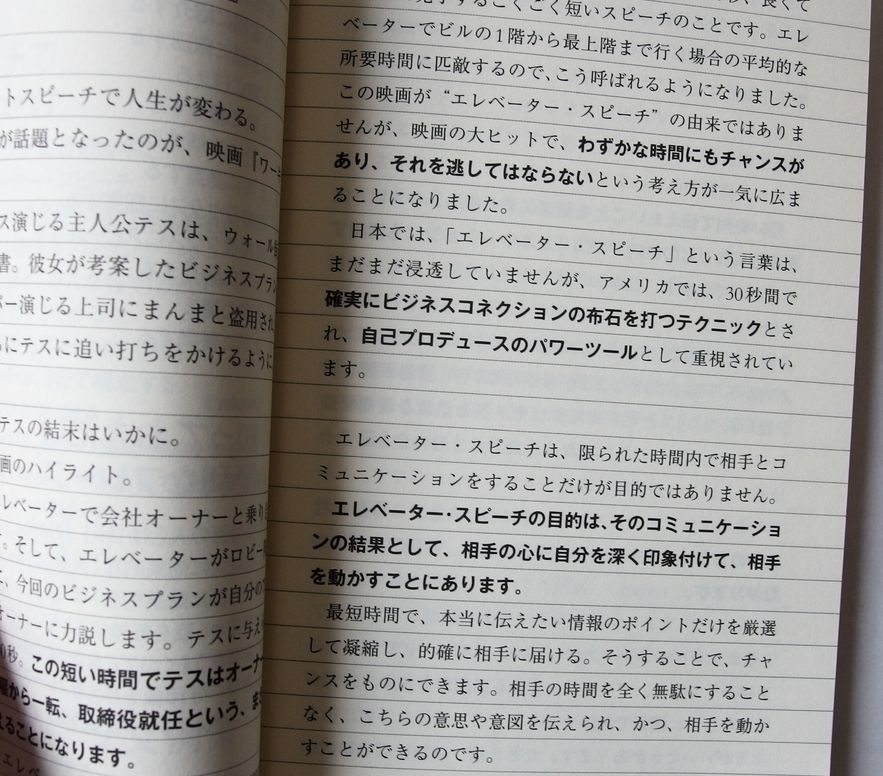 トスピーチで人生が変わる。
が話題となったのが、映画『ワー
ス演じる主人公テスは、ウォール
書。彼女が考案したビジネスプラン
バー演じる上司にまんまと盗用され
にテスに追い打ちをかけるように
テスの結末はいかに。
画のハイライト。
レベーターで会社オーナーと乗り
。そして、エレベーターがロビー
、今回のビジネスプランが自分の
オーナーに力説します。テスに与え
0秒。この短い時間でテスはオーナ
から一転、取締役就任という、ま
ることになります。
エレベ
するごくごく短いスピーチのことです。エレ
ベーターでビルの1階から最上階まで行く場合の平均的な
所要時間に匹敵するので、こう呼ばれるようになりました。
この映画が“エレベーター・スピーチ”の由来ではありま
せんが、映画の大ヒットで、わずかな時間にもチャンスが
あり、それを逃してはならないという考え方が一気に広ま
ることになりました。
日本では、「エレベーター・スピーチ」という言葉は、
まだまだ浸透していませんが、アメリカでは、30秒間で
確実にビジネスコネクションの布石を打つテクニックとさ
れ、自己プロデュースのパワーツールとして重視されてい
ます。
エレベーター・スピーチは、限られた時間内で相手とコ
ミュニケーションをすることだけが目的ではありません。
エレベーター・スピーチの目的は、そのコミュニケーショ
ンの結果として、相手の心に自分を深く印象付けて、相手
を動かすことにあります。
最短時間で、本当に伝えたい情報のポイントだけを厳選
して凝縮し、的確に相手に届ける。そうすることで、チャ
ンスをものにできます。相手の時間を全く無駄にすること
なく、こちらの意思や意図を伝えられ、かつ、相手を動か
すことができるのです。